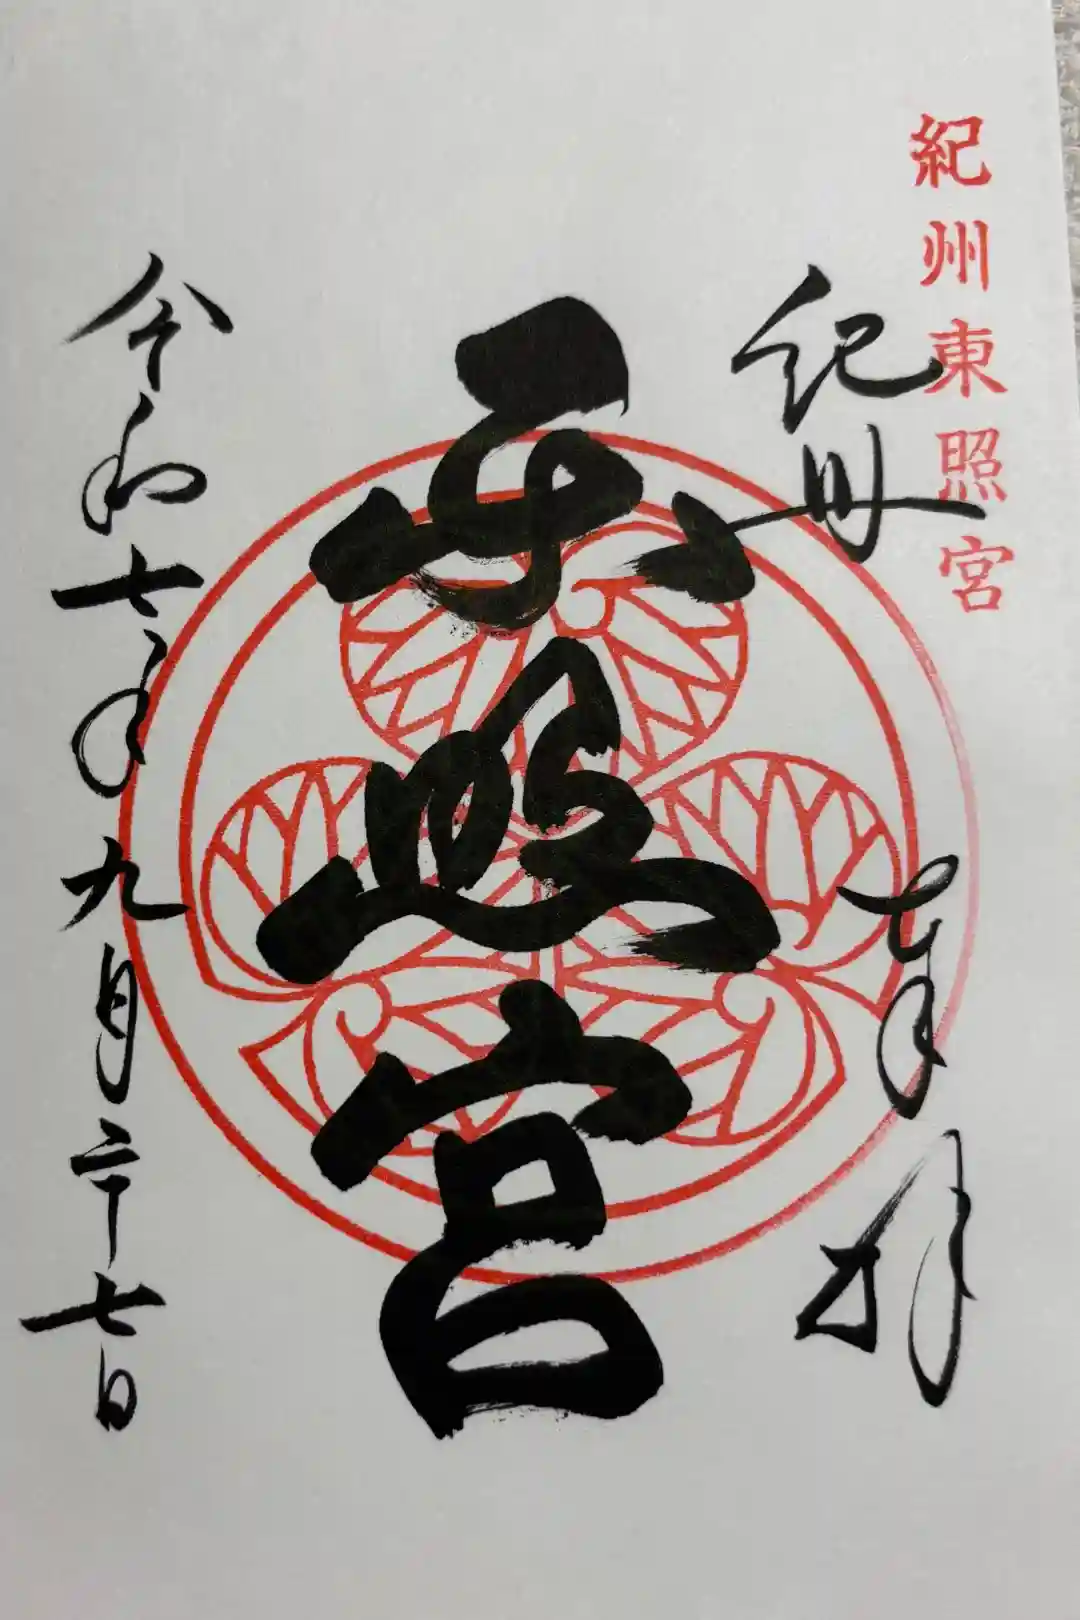 紀州東照宮
紀州 奉拝
東照宮
令和七年九月二十七日